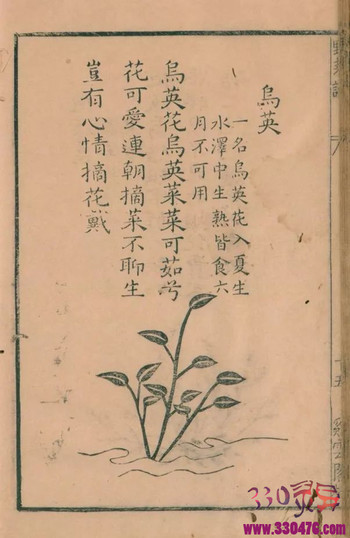 烏英
一名烏英花入夏生
水澤中生熟皆食六
月不可用
烏英花烏英菜菜可茹兮
花可愛連朝摘菜不聊生
豈有心情摘花戴
330
www.330470.com